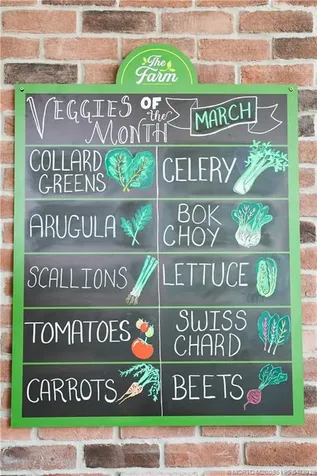 The
Farm
VEGGIES OF the
MONTH
MARCH
COLLARD
GREENS
CELERY
ARUGULA
BOK
CHOY
SCALLIONS
LETTUCE
TOMATOES
SWISS
CHARD
CARROTS
BEETS